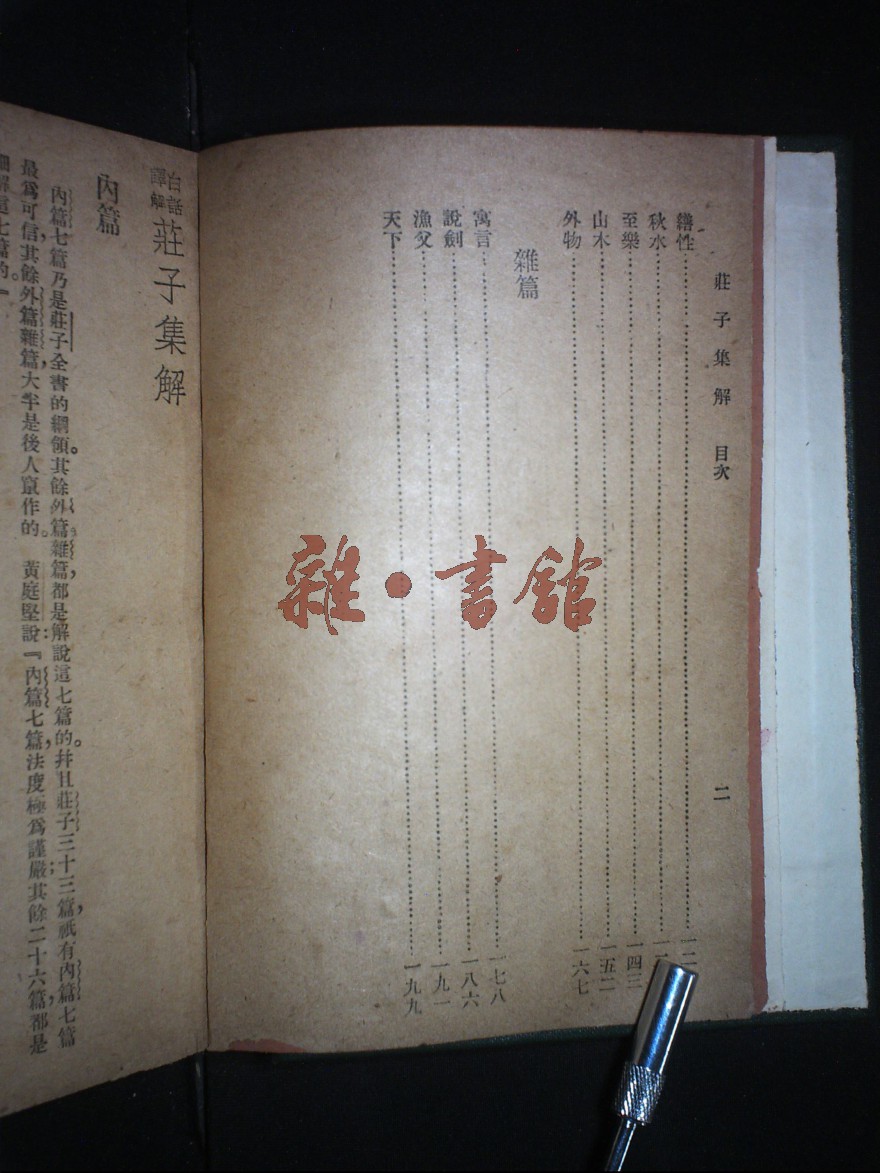 莊子集解 目次 二
繕性
秋水
至樂 一四三
山木 一五二
外物 一六七
雜篇
寓言 一七八
說劍 一八六
漁父 一九一
天下 一九九
白話譯解 莊子集解
內篇
內篇七篇乃是莊子全書的綱領。其餘外篇雜篇，都是解說這七篇的。幷且莊子三十三篇，祇有內篇七篇
最爲可信，其餘外篇，雜篇大半是後人竄作的。黃庭堅說：『內篇七篇，法度極爲謹嚴；其餘二十六篇，都是
解這七篇的。』
雜·書館